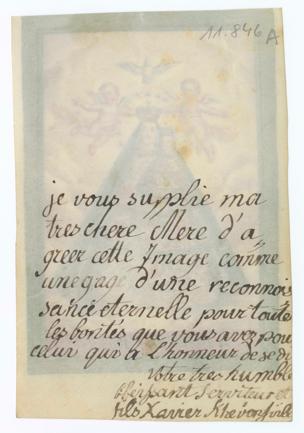 11.846 A
je vous supplie ma
tres chere Mere d'a
greer cette Image comme
une gage d'une reconnois
sance eternelle pour toute
les bontés que vous avez pour
celui qui a l'honneur de se di
Votre tres humble
Obeissant Serviteur et
fils Xavier